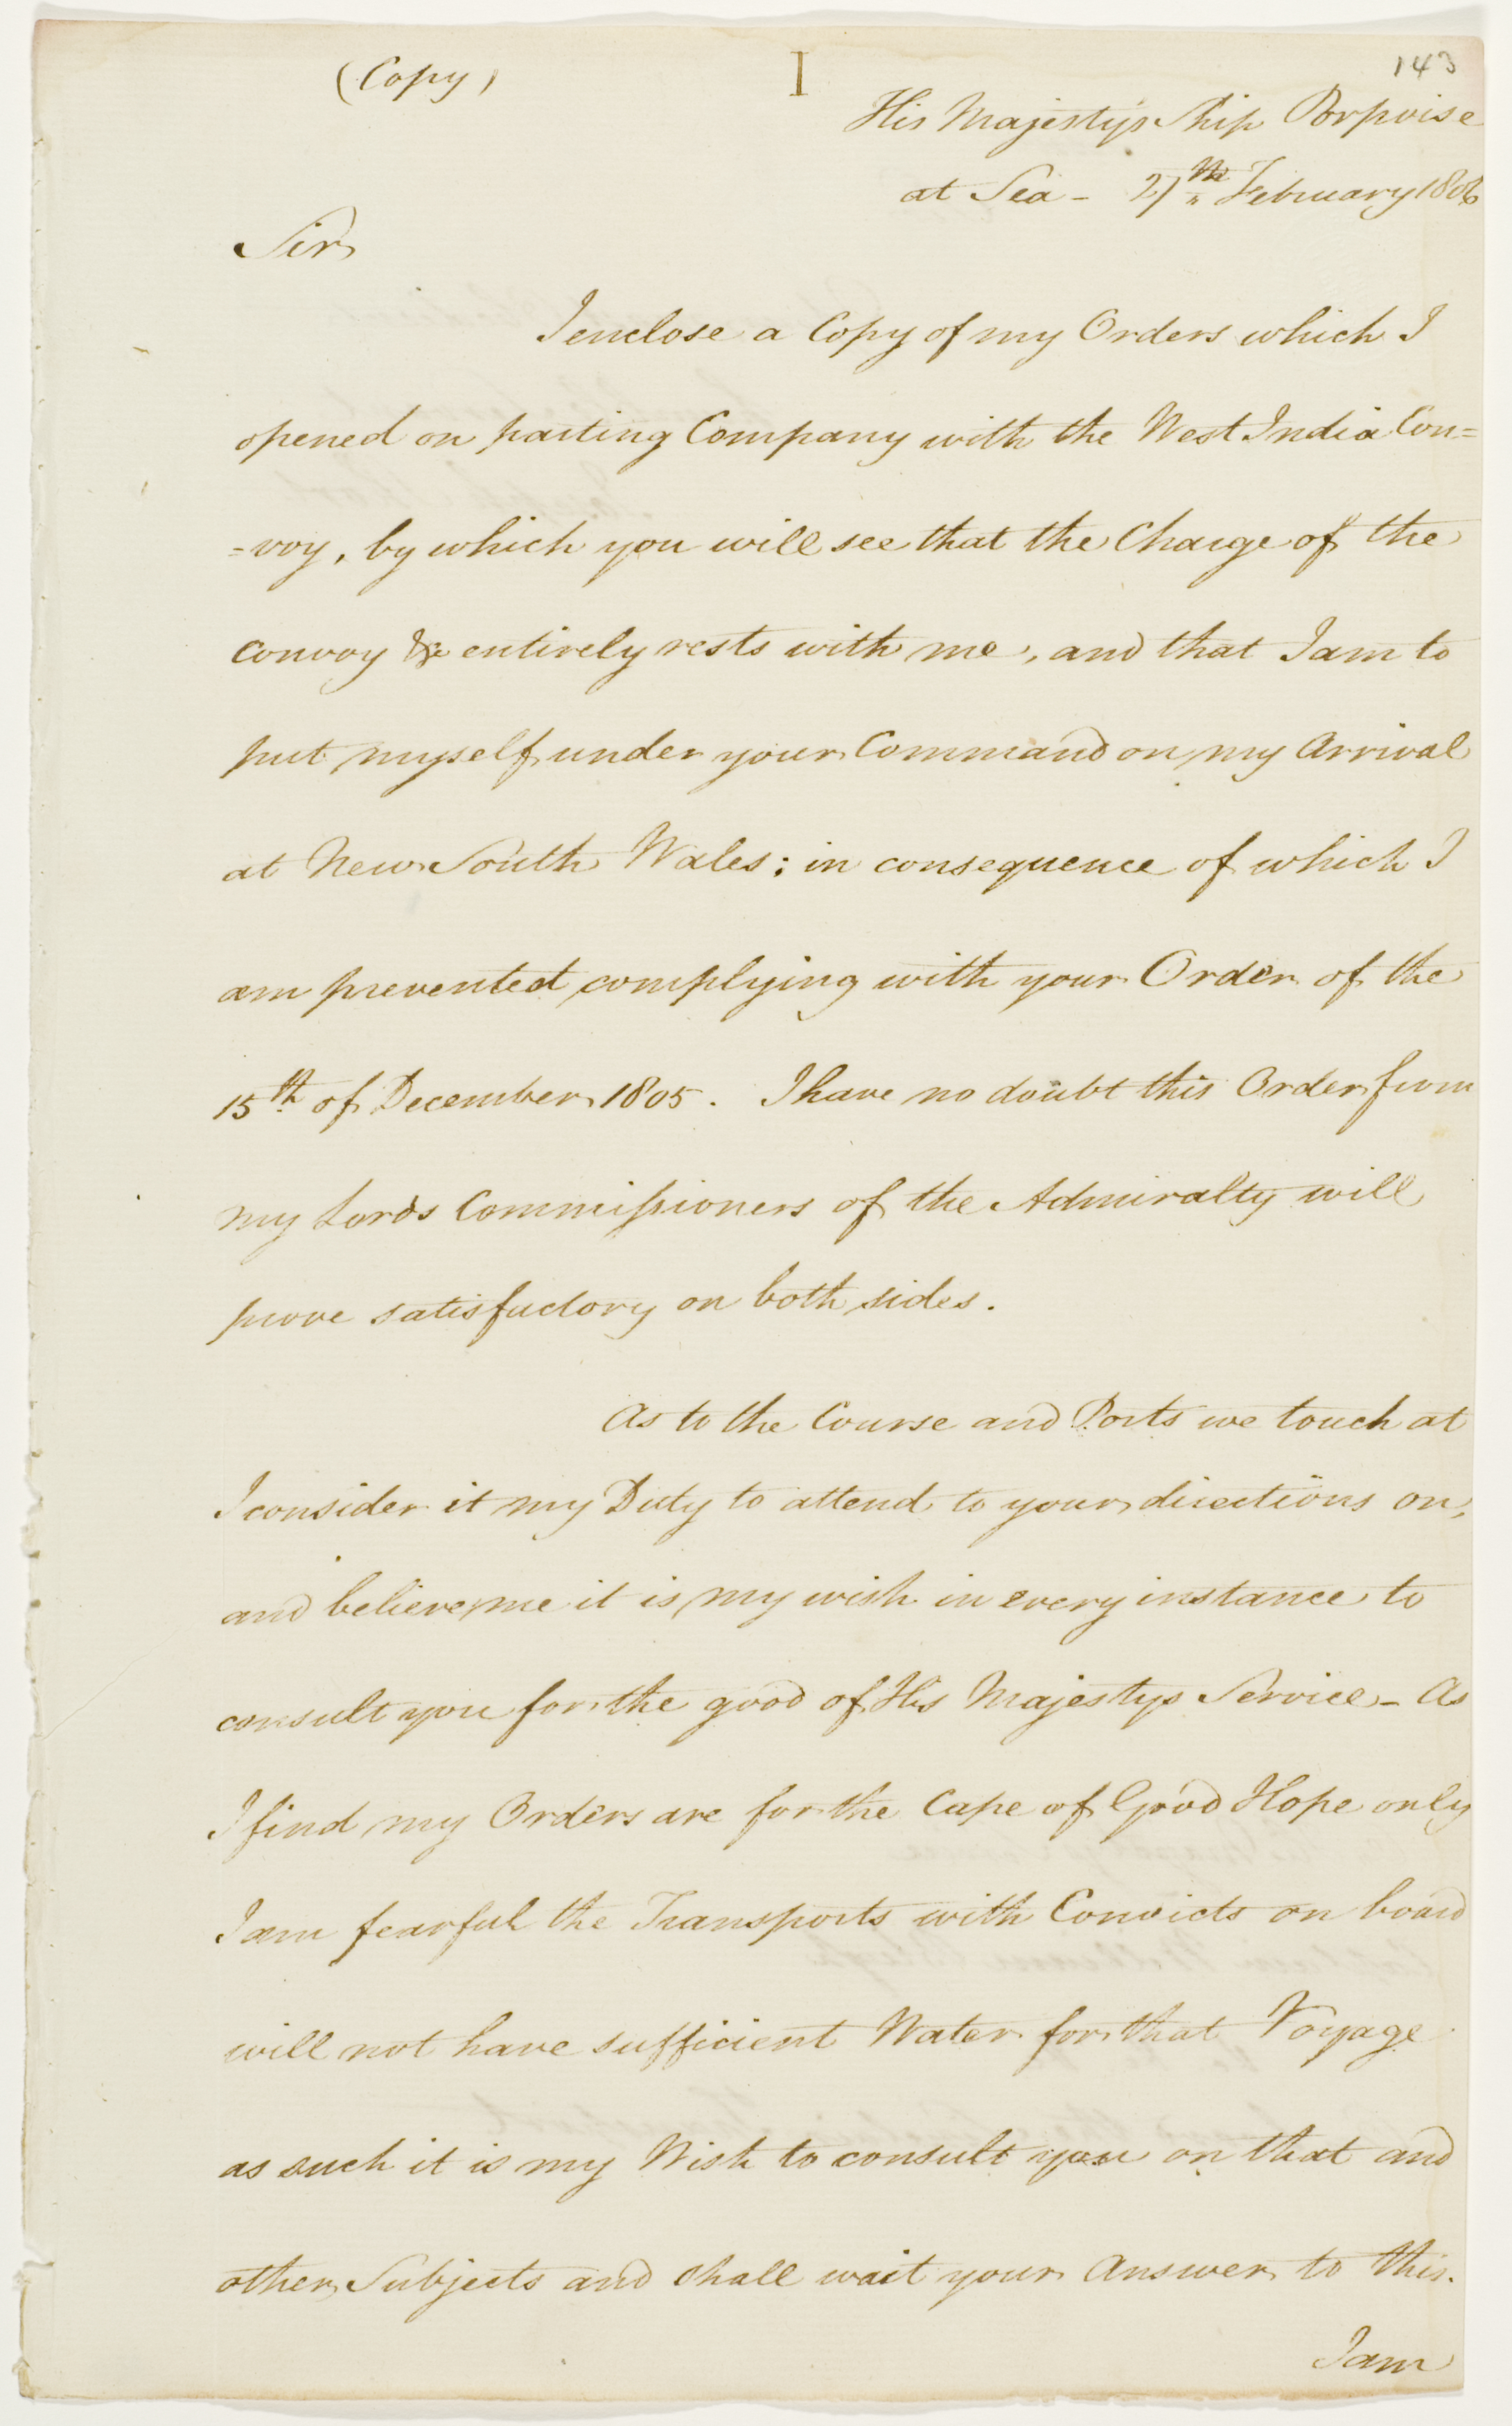 (Copy)
I
143
His Majesty's Ship Porpoise
at Sea - 27th February 1806
Sir
I enclose a Copy of my Orders which I
opened on parting Company with the West India Con=
=voy, by which you will see that the Charge of the
convoy &c entirely rests with me, and that I am to
put myself under your Command on my Arrival
at New South Wales; in consequence of which I
am prevented complying with your Order of the
15th of December 1805. I have no doubt this Order from
my Lords Commissioners of the Admiralty will
prove satisfactory on both sides.
As to the Course and Ports we touch at
I consider it my Duty to attend to your directions on,
and believe me it is my wish in every instance to
consult you for the good of His Majestys Service - As
I find my Orders are for the Cape of Good Hope only
I am fearful the Transports with Convicts on board
will not have sufficient Water for that Voyage
as such it is my Wish to consult you on that and
other Subjects and shall wait your Answer to this.
I am